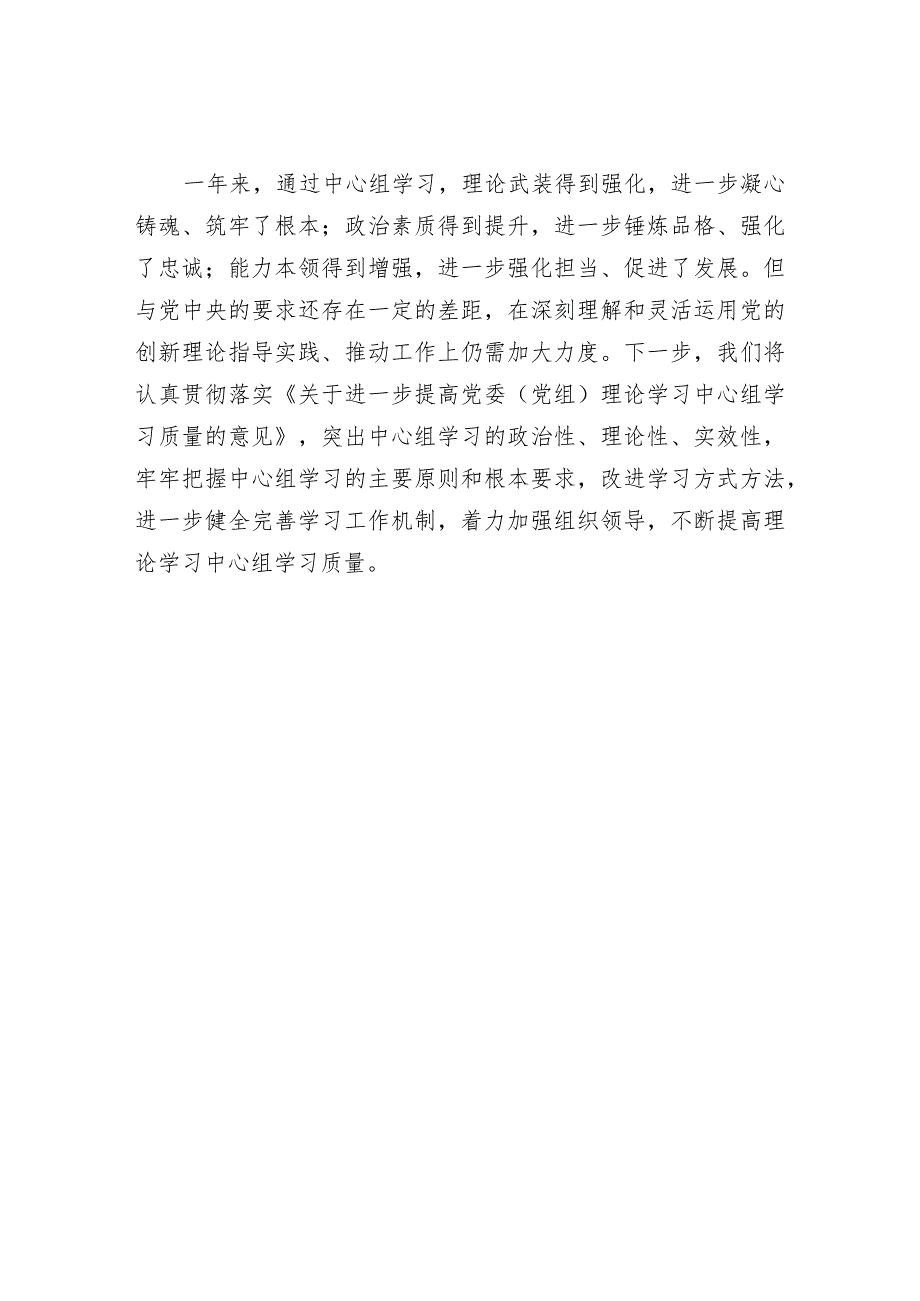 一年来，通过中心组学习，理论武装得到强化，进一步凝心
铸魂、筑牢了根本；政治素质得到提升，进一步锤炼品格、强化
了忠诚；能力本领得到增强，进一步强化担当、促进了发展。但
与党中央的要求还存在一定的差距，在深刻理解和灵活运用党的
创新理论指导实践、推动工作上仍需加大力度。下一步，我们将
认真贯彻落实《关于进一步提高党委（党组）理论学习中心组学
习质量的意见》，突出中心组学习的政治性、理论性、实效性，
牢牢把握中心组学习的主要原则和根本要求，改进学习方式方法，
进一步健全完善学习工作机制，着力加强组织领导，不断提高理
论学习中心组学习质量。